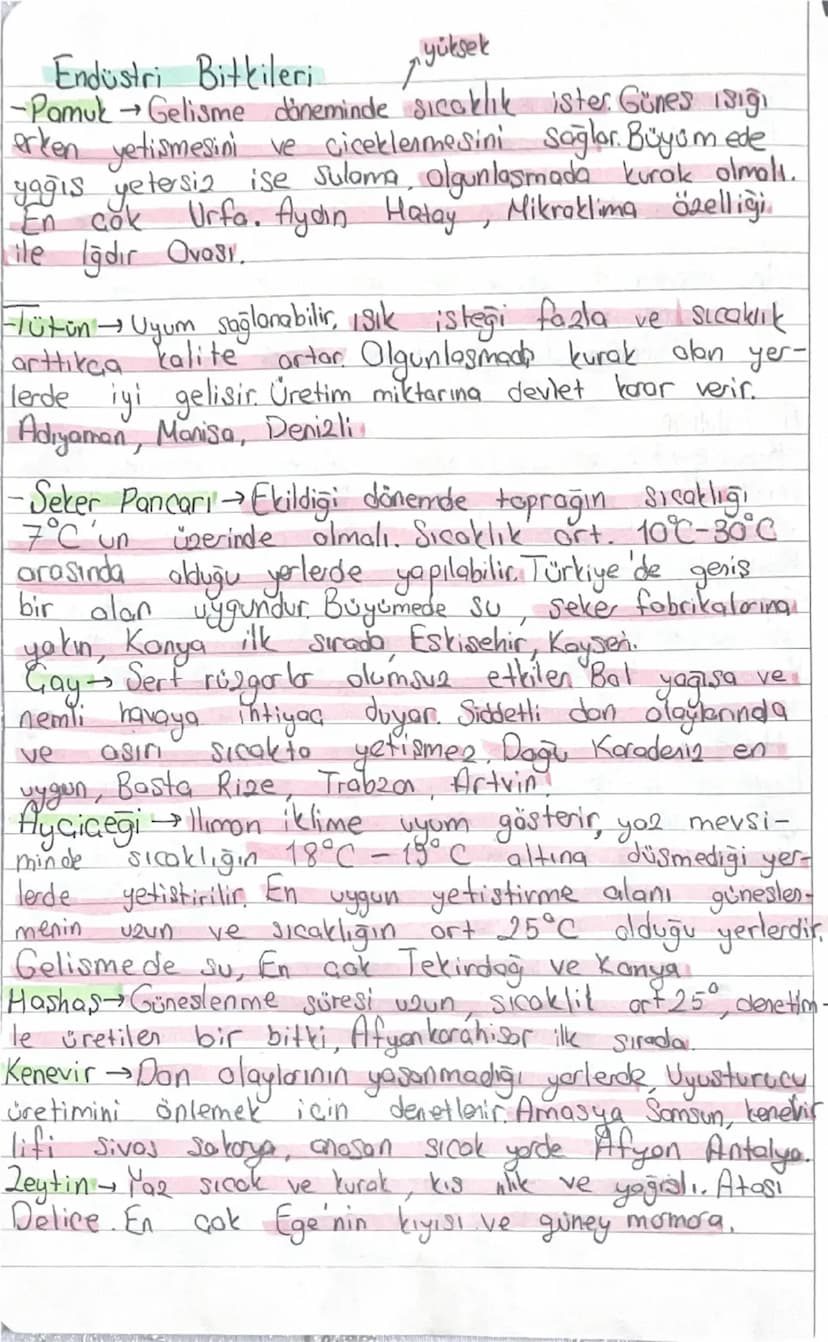 yüksek
Endüstri Bitkileri
-Pamuk → Gelisme döneminde sıcaklık ister. Günes ısığı
erken yetismesini ve ciceklenmesini sağlar. Büyümede
yağıs yetersiz ise sulama, olgunlasmada kurak olmalı.
En cok Urfa. Aydın Hatay, Mikroklima özelliği
ile Iğdır Ovası.
-Tütün → Uyum sağlanabilir, ısık isteği fazla ve sıcaklık
arttıkca kalite artar. Olgunlasmada kurak olan yer-
lerde iyi gelisir. Üretim miktarına devlet karar verir.
Adıyaman, Manisa, Denizli
-Seker Pancarı → Ekildiği dönemde toprağın sıcaklığı
7°C'un üzerinde olmalı. Sıcaklık ort. 10°C-30°C
arasında olduğu yerlerde yapılabilir. Türkiye'de genis
bir alan uygundur. Büyümede su, seker fabrikalarına
yakın, Konya ilk sırada, Eskisehir, Kayseri.
Çay → Sert rüzgarlar olumsuz etkiler. Bol yağısa ve
nemli havaya ihtiyaç duyar. Siddetli don olaylarında
ve asırı sıcakta yetismez. Doğu Karadeniz en
uygun, Basta Rize, Trabzon, Artvin.
Ayciceği → Ilıman iklime uyum gösterir, yaz mevsi-
minde sıcaklığın 18°C - 19°C altına düsmediği yer-
lerde yetistirilir. En uygun yetistirme alanı güneslen-
menin uzun ve sıcaklığın ort 25°C olduğu yerlerdir.
Gelismede su, En çok Tekirdağ ve Konya
Hashas → Güneslenme süresi uzun, sıcaklık ort 25°, denetim-
le üretilen bir bitki, Afyonkarahisar ilk sırada.
Kenevir → Don olaylarının yasanmadığı yerlerde, Uyusturucu
üretimini önlemek icin denetlenir. Amasya Samsun, kenevir
lifi sivas sakarya, anason sıcak yerde Afyon Antalya.
Zeytin → Yaz sıcak ve kurak, kıs ılık ve yağıslı. Atası
Delice. En çok Ege'nin kıyısı ve güney marmara.